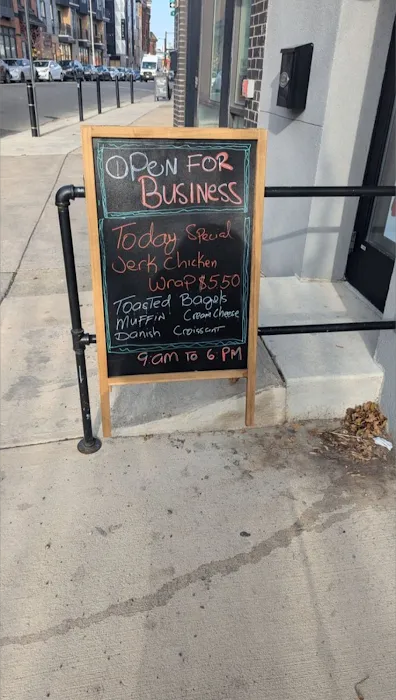 OPEN FOR
BUSINESS
Today Special
Jerk Chicken
Wrap $5.50
Toasted Bagels
Muffin Cream Cheese
Danish Croissant
9am TO 6 PM